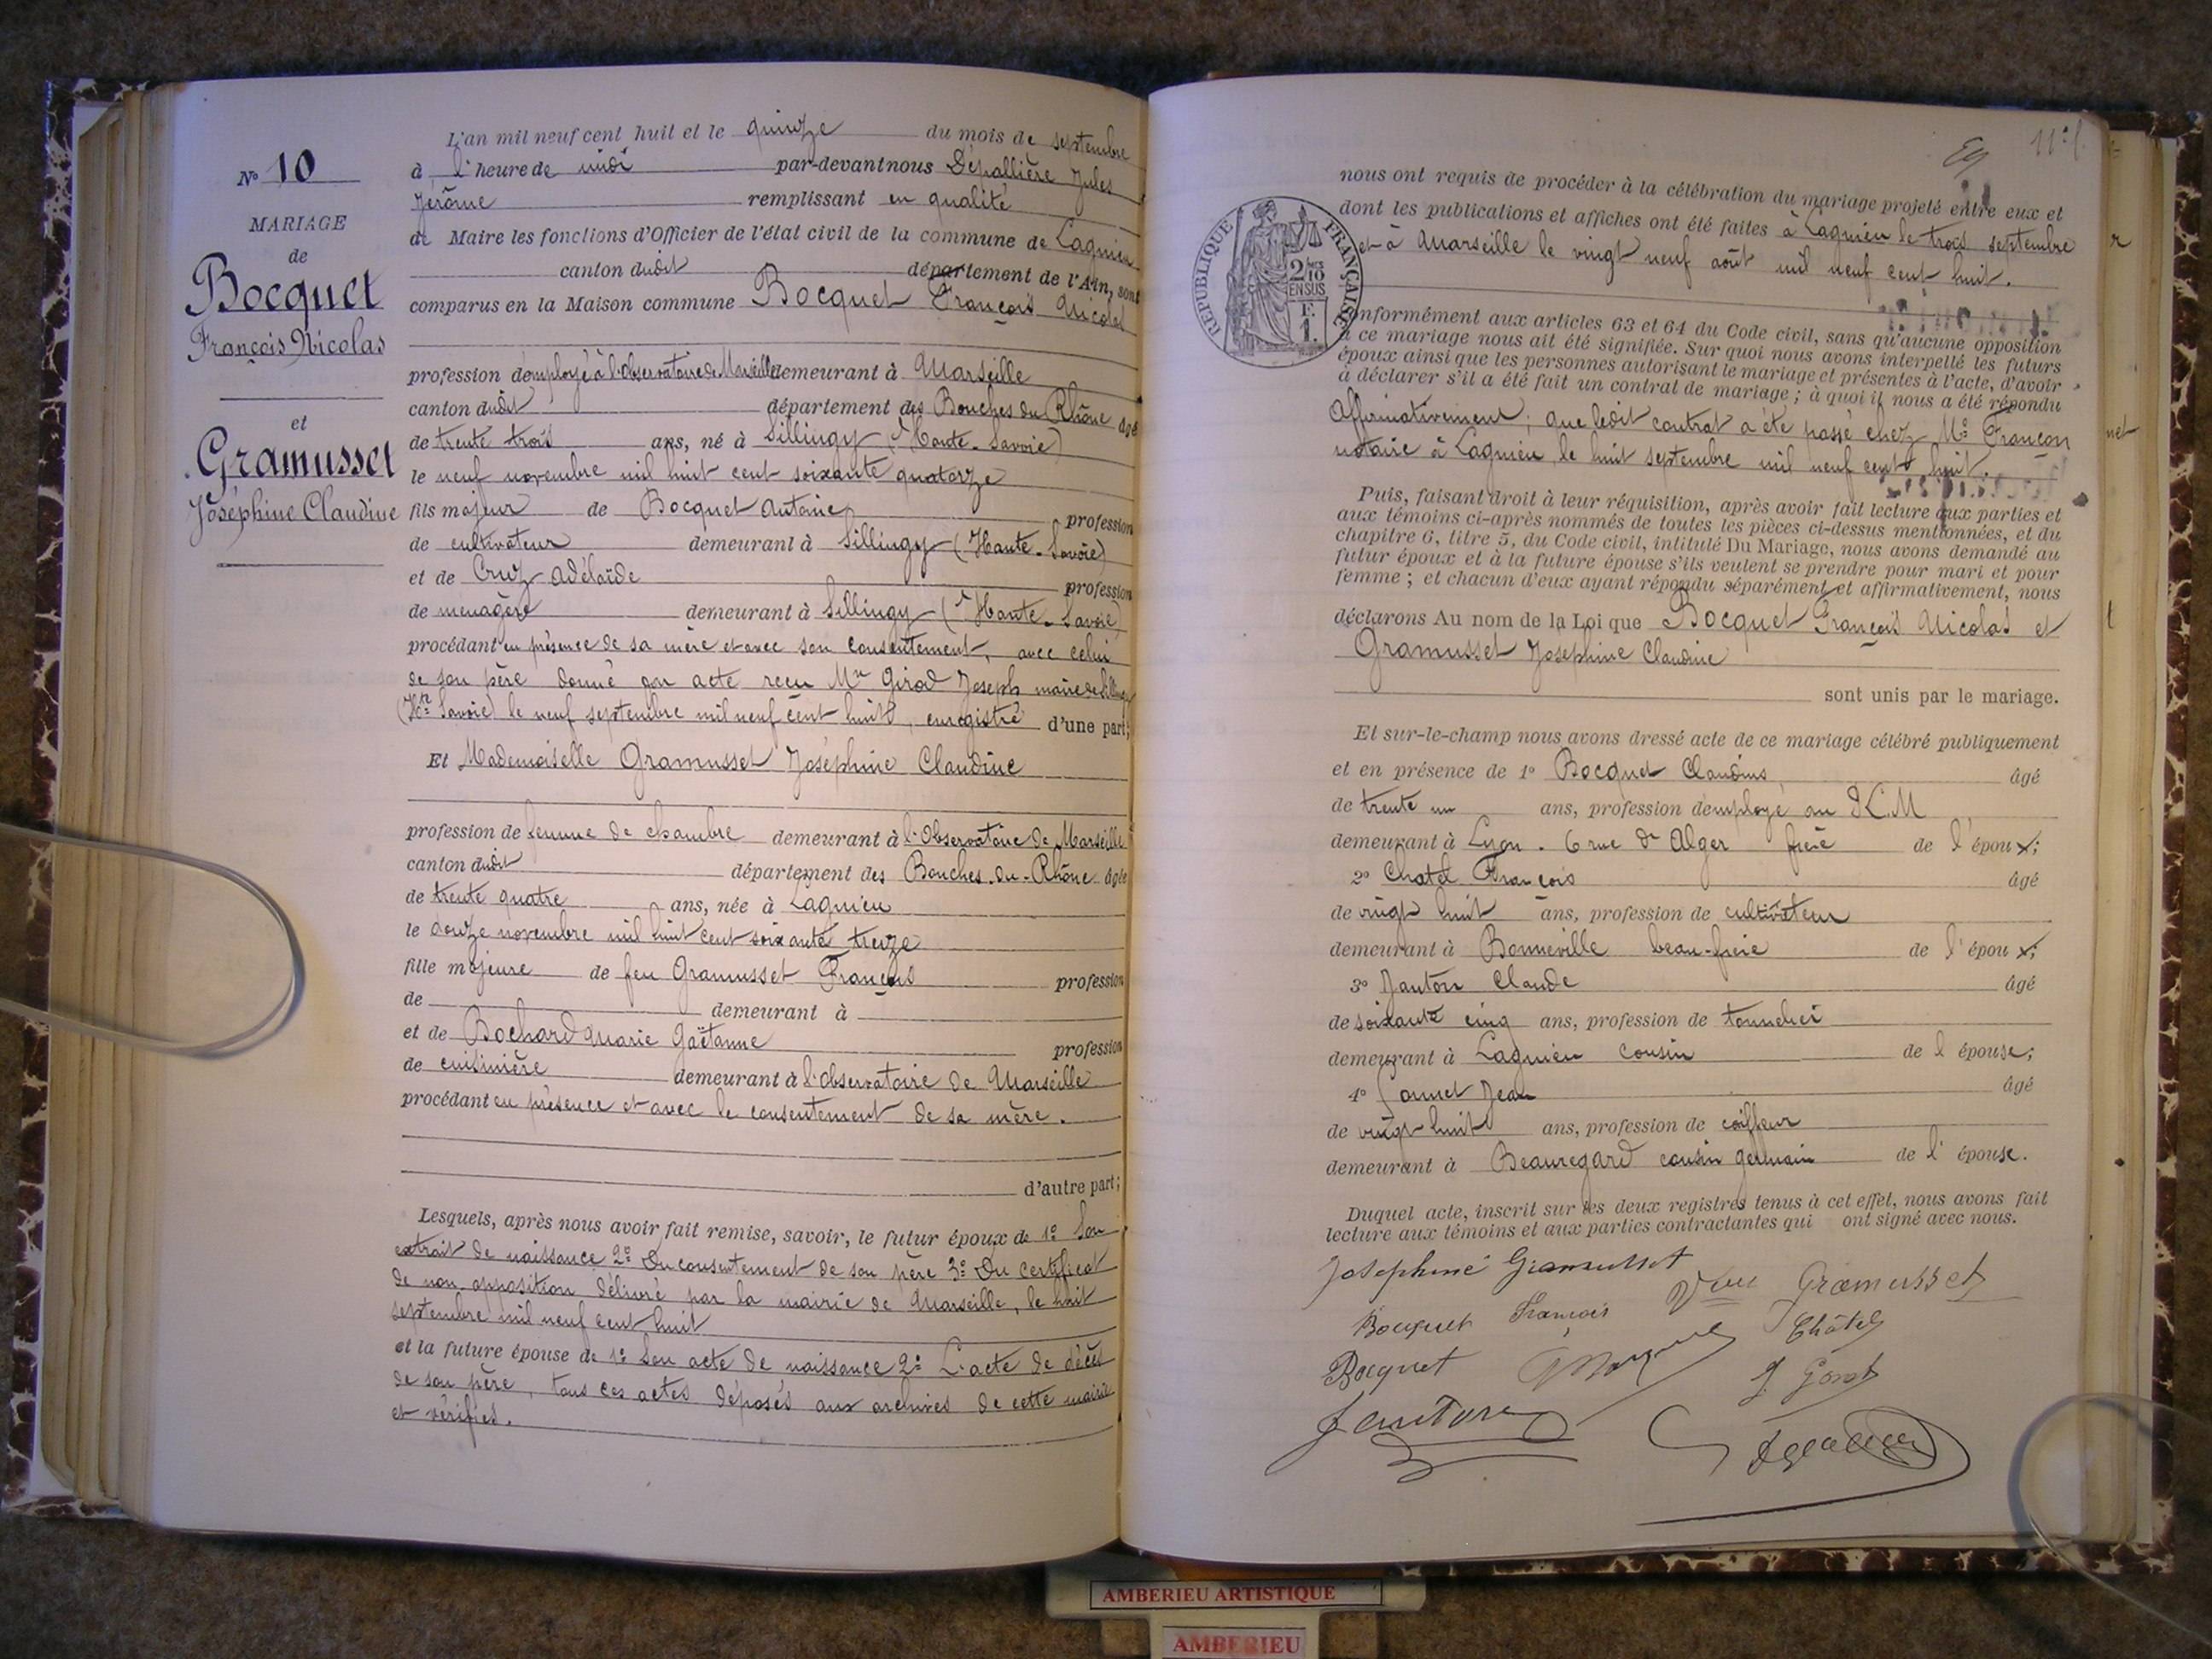 N° 10
MARIAGE
de
Bocquet
François Nicolas
et
Gramusset
Joséphine Claudine
L'an mil neuf cent huit et le quinze du mois de septembre
à l'heure de midi par-devant nous Dépallière Jules
Jérôme remplissant en qualité
de Maire les fonctions d'Officier de l'état civil de la commune de Lagnieu
canton dudit département de l'Ain, sont
comparus en la Maison commune Bocquet François Nicolas
profession d'employé à l'observatoire de Marseille demeurant à Marseille
canton dudit département des Bouches du Rhône âgé
de trente trois ans, né à Sillingy (Haute-Savoie)
le neuf novembre mil huit cent soixante quatorze
fils majeur de Bocquet Antoine profession
de cultivateur demeurant à Sillingy (Haute-Savoie)
et de Cruz Adélaïde profession
de ménagère demeurant à Sillingy (Haute-Savoie)
procédant en présence de sa mère et avec son consentement, avec celui
de son père donné par acte reçu Mr Girod Joseph maire de Sillingy
(Hte Savoie) le neuf septembre mil neuf cent huit, enregistré d'une part;
Et Mademoiselle Gramusset Joséphine Claudine
profession de femme de chambre demeurant à l'Observatoire de Marseille
canton dudit département des Bouches-du-Rhône âgée
de trente quatre ans, née à Lagnieu
le douze novembre mil huit cent soixante treize
fille majeure de feu Gramusset François profession
de demeurant à
et de Bochard Marie Gaëtanne profession
de cuisinière demeurant à l'observatoire de Marseille
procédant en présence et avec le consentement de sa mère.
d'autre part;
Lesquels, après nous avoir fait remise, savoir, le futur époux de 1° Son
extrait de naissance 2° Du consentement de son père 3° Du certificat
de non opposition délivré par la mairie de Marseille, le huit
septembre mil neuf cent huit
et la future épouse de 1° Son acte de naissance 2° L'acte de décès
de son père, tous ces actes déposés aux archives de cette mairie
et vérifiés.
11
REPUBLIQUE FRANÇAISE
2/10
EN SUS
F.
1.
nous ont requis de procéder à la célébration du mariage projeté entre eux et
dont les publications et affiches ont été faites à Lagnieu le trois septembre
et à Marseille le vingt neuf août mil neuf cent huit.
conformément aux articles 63 et 64 du Code civil, sans qu'aucune opposition
à ce mariage nous ait été signifiée. Sur quoi nous avons interpellé les futurs
époux ainsi que les personnes autorisant le mariage et présentes à l'acte, d'avoir
à déclarer s'il a été fait un contrat de mariage; à quoi il nous a été répondu
Affirmativement; que ledit contrat a été passé chez Me Françon
notaire à Lagnieu, le huit septembre mil neuf cent huit.
Puis, faisant droit à leur réquisition, après avoir fait lecture aux parties et
aux témoins ci-après nommés de toutes les pièces ci-dessus mentionnées, et du
chapitre 6, titre 5, du Code civil, intitulé Du Mariage, nous avons demandé au
futur époux et à la future épouse s'ils veulent se prendre pour mari et pour
femme; et chacun d'eux ayant répondu séparément et affirmativement, nous
déclarons Au nom de la Loi que Bocquet François Nicolas et
Gramusset Joséphine Claudine
sont unis par le mariage.
Et sur-le-champ nous avons dressé acte de ce mariage célébré publiquement
et en présence de 1° Bocquet Claudius âgé
de trente un ans, profession d'employé au P.L.M
demeurant à Lyon. 6 rue d'Alger frère de l'époux;
2° Chatel François âgé
de vingt huit ans, profession de cultivateur
demeurant à Bonneville beau-frère de l'époux;
3° Janton Claude âgé
de soixante cinq ans, profession de tonnelier
demeurant à Lagnieu cousin de l'épouse;
4° Jean âgé
de vingt huit ans, profession de coiffeur
demeurant à Beauregard cousin germain de l'épouse.
Duquel acte, inscrit sur les deux registres tenus à cet effet, nous avons fait
lecture aux témoins et aux parties contractantes qui ont signé avec nous.
Joséphine Gramusset
Vve Gramusset
Bocquet François
Châtel
Bocquet
Janton
AMBERIEU ARTISTIQUE
AMBERIEU